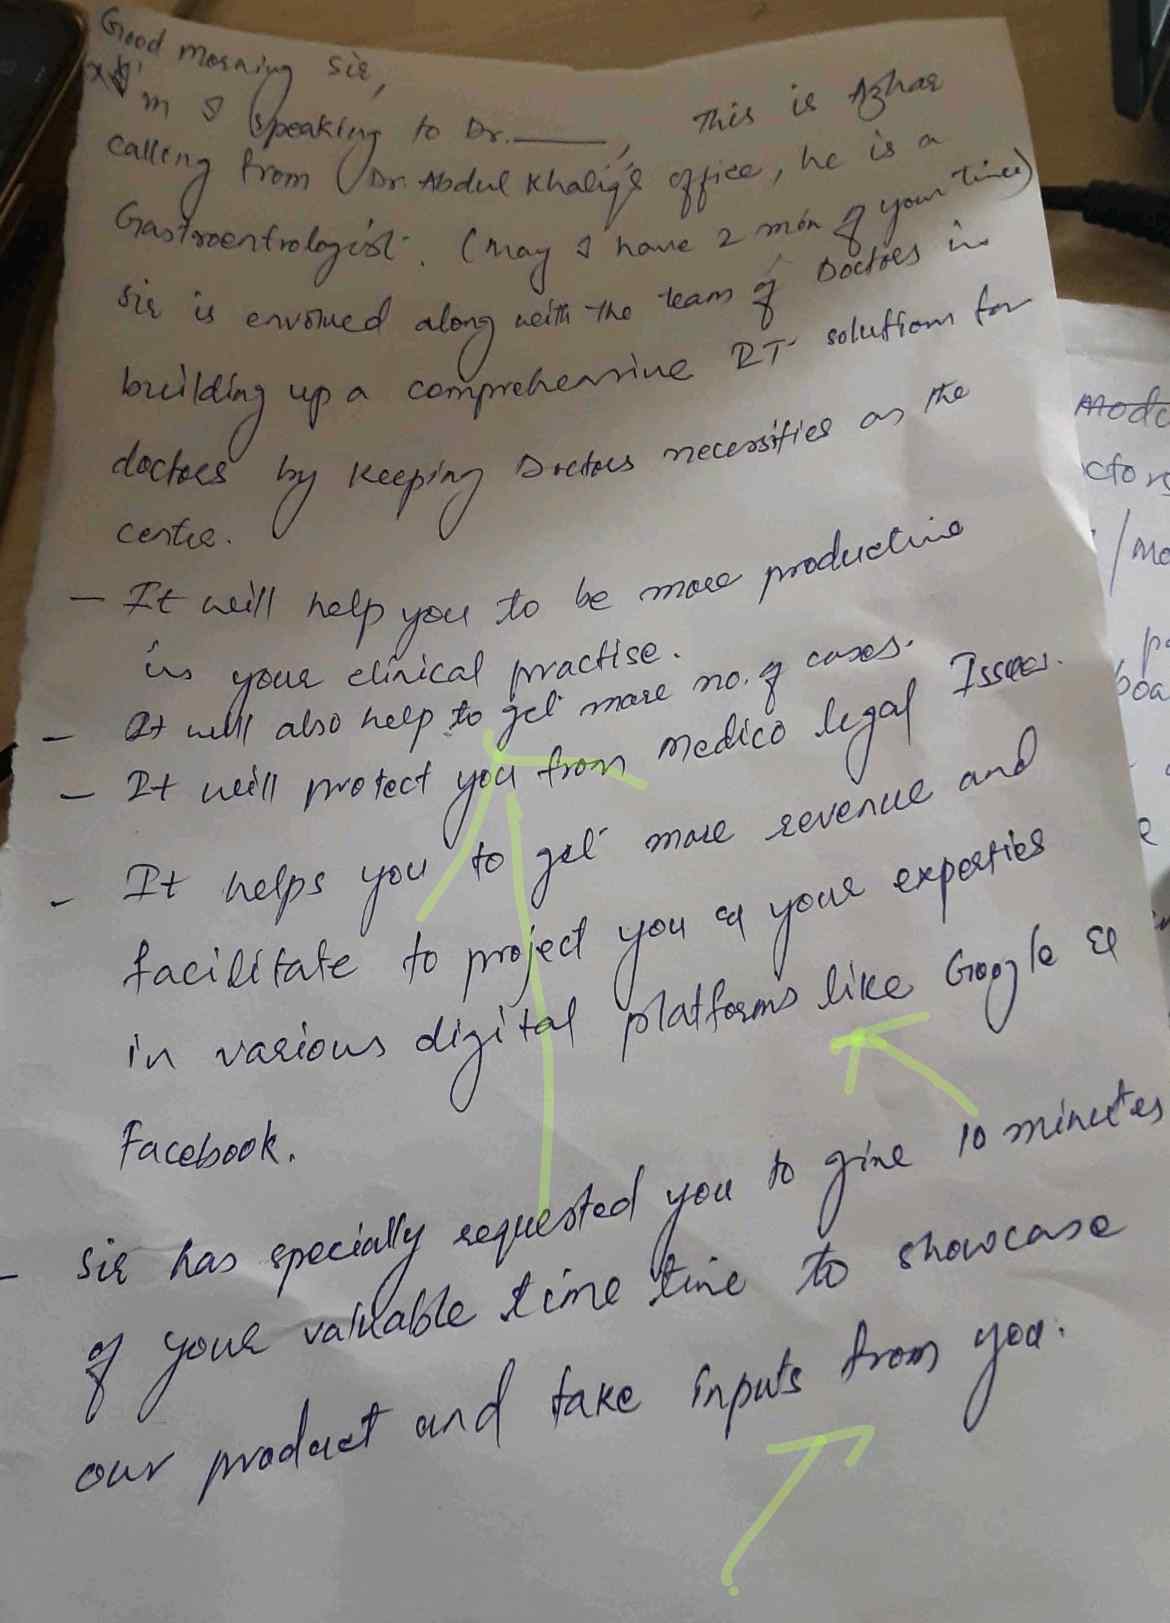 Good morning Sir,
m I speaking to Dr. ______, This is Azhar
calling from Dr. Abdul Khaliq's office, he is a
Gastroentrologist. (may I have 2 min of your time)
Sir is envolved along with the team of Doctors in
building up a comprehensive IT solutions for
doctors by keeping Doctors necessities as the
centre.
- It will help you to be more productive
in your clinical practise.
- It will also help to get more no. of cases.
- It will protect you from medico legal Issues.
- It helps you to get more revenue and
facilitate to project you & your experties
in various digital platforms like Google &
Facebook.
- Sir has specially requested you to give 10 minutes
of your valuable time time to showcase
our product and take inputs from you.